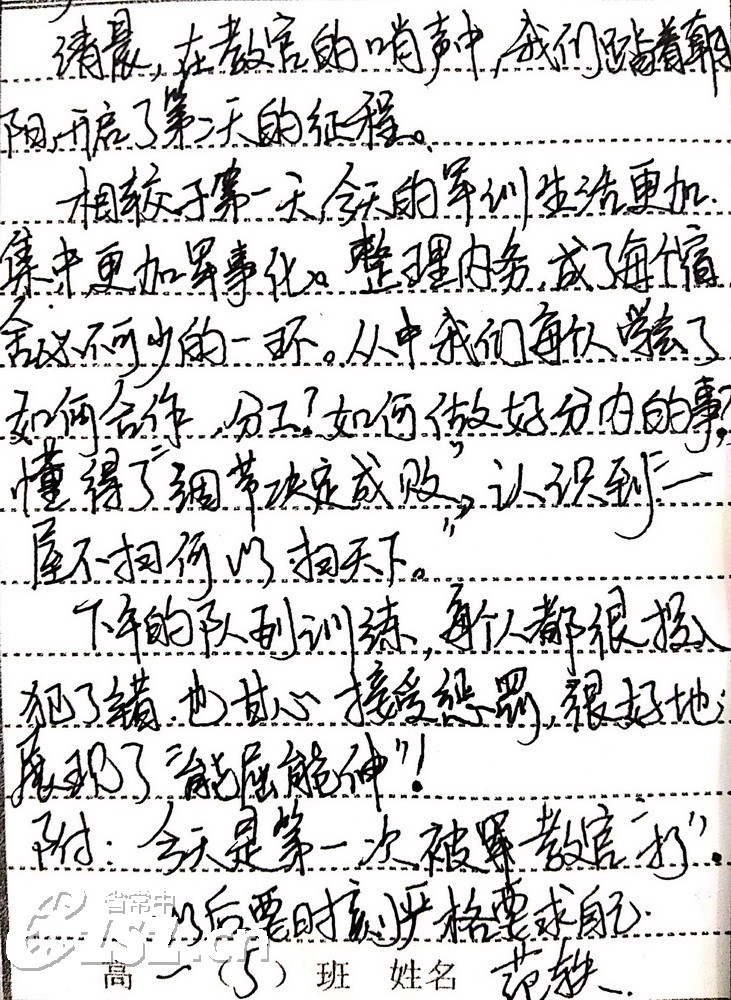 清晨,在教官的哨声中,我们踏着朝
阳,开启了第二天的征程。
相较于第一天,今天的军训生活更加
集中,更加军事化。整理内务,成了每个宿
舍必不可少的一环。从中我们每个人学会了
如何合作,分工?如何做好分内的事?
懂得了“细节决定成败”,认识到“一
屋不扫何以扫天下。”
下午的队列训练,每个人都很投入
犯了错,也甘心接受惩罚,很好地
展现了“能屈能伸”!
附:今天是第一次被军教官“打”.
以后要时刻严格要求自己.
省常中
CZSLSZ.cn
高一(5)班 姓名 范轶